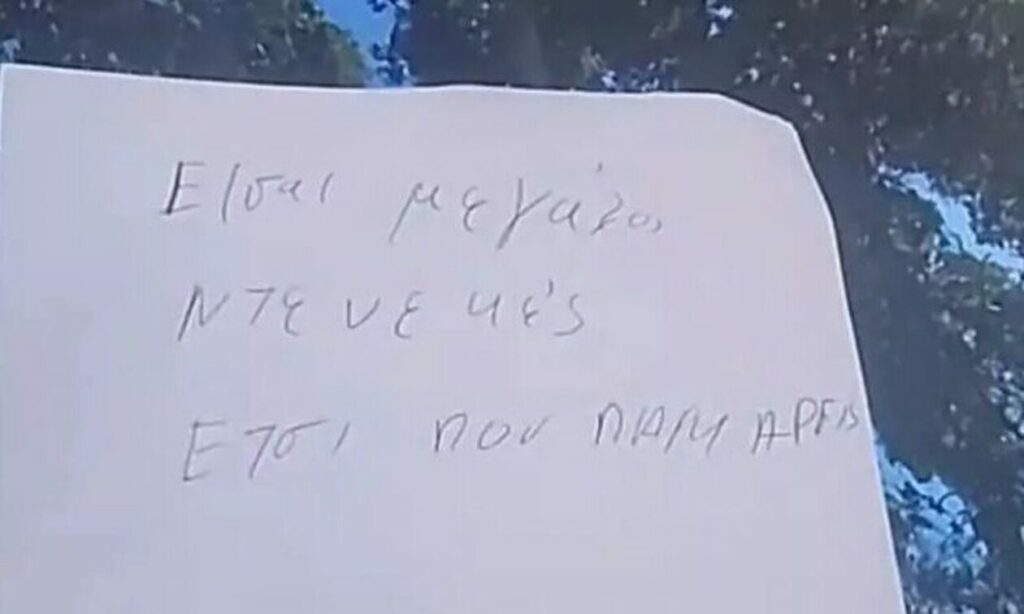 Εισαι μεγάλος
Ντενεκές
Ετσι που ΠΑΡΚΑΡΕΙΣ